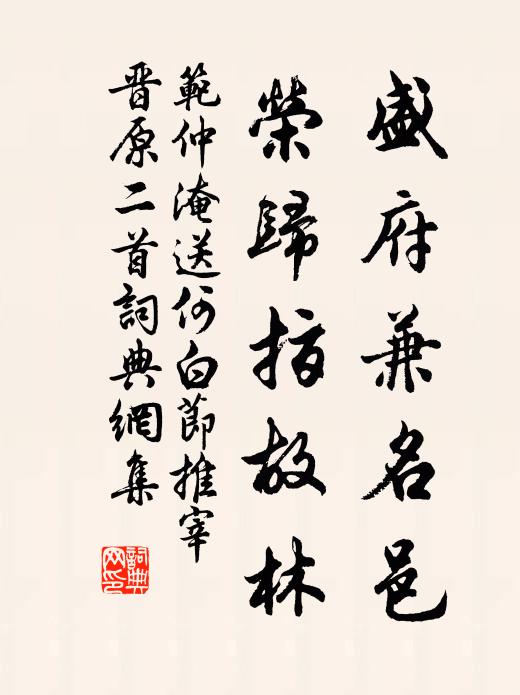 盛府兼名邑
榮歸指故林
範仲淹送何白節推宰
晉原二首詞典網集
詞典网印